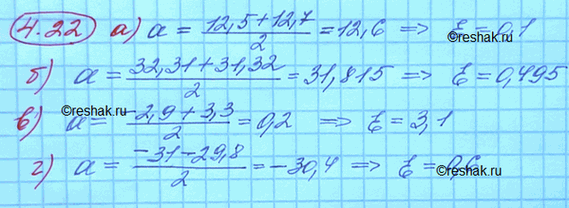 4.22 а) a = (12,5+12,7)/2 = 12,6 => ε = 0,1
б) a = (32,31+31,32)/2 = 31,815 => ε = 0,495
©reshak.ru
в) a = (-2,9+3,3)/2 = 0,2 => ε = 3,1
г) a = (-31-29,8)/2 = -30,4 => ε = 0,6
©reshak.ru